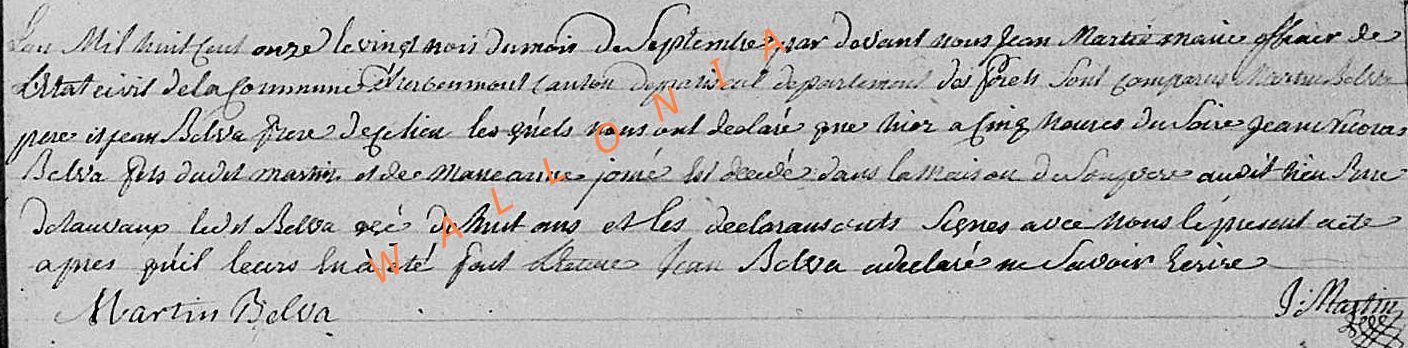 L'an Mil huit Cent onze le vingt trois du mois de Septembre par devant nous Jean Martin maire officier de
L'Etat civil de la Commune d'herbeumont Canton de departement des forets Sont Comparus Martin Belva
pere et jean Belva frere de Celieu les quels nous ont declaré que hier a Cinq heures du Soire Jean Nicolas
Belva fils dudit martin et de Marie anne joiné Est decedé dans la maison du Sou pere audit lieu Rue
de Lauvaux ledit Belva agé de huit ans et les declarans onts Signes avec nous le présent acte
apres qu'il leurs En a été fait Lecture Jean Belva a declaré ne Savoir Ecrire
Martin Belva J: Martin
WALLONIA